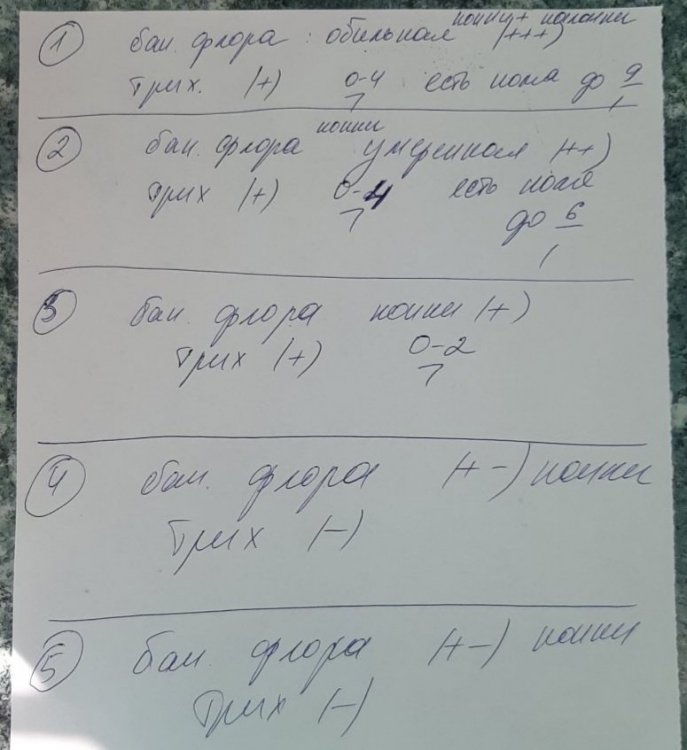 ① бак. флора : обильная кокки + палочки (+++)
трих. (+) 0-4/1 есть поля до 9/1
② бак. флора кокки умеренная (++)
трих (+) 0-4/1 есть поля
до 6/1
③ бак. флора кокки (+)
трих (+) 0-2/1
④ бак. флора (+-) кокки
трих (-)
⑤ бак. флора (+-) кокки
трих (-)